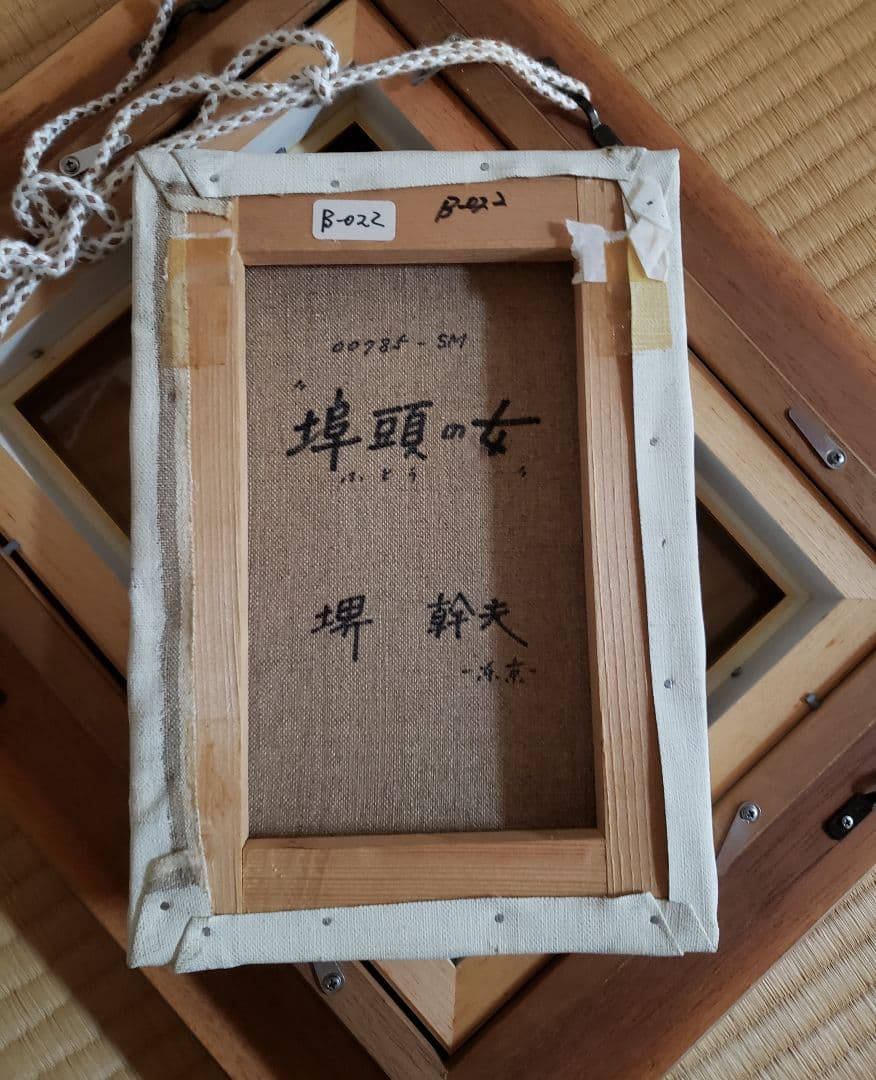 B-022 B-022
00785-SM
"埠頭の女
ふとう
堺 幹夫
-東京-